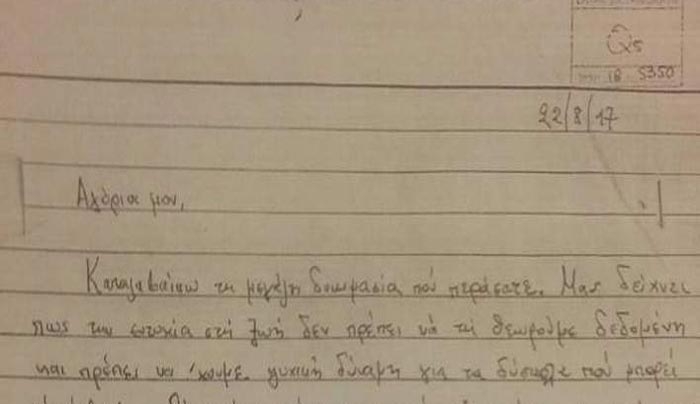 Qs
18 5350
22/8/17
Αγόρια μου,
Καταλαβαίνω τη μεγάλη δοκιμασία πού περάσατε. Μας δείχνει
πως την ευτυχία στή ζωή δεν πρέπει νά τή θεωρούμε δεδομένη
και πρέπει να 'χουμε ψυχική δύναμη για τα δύσκολα πού μπορεί